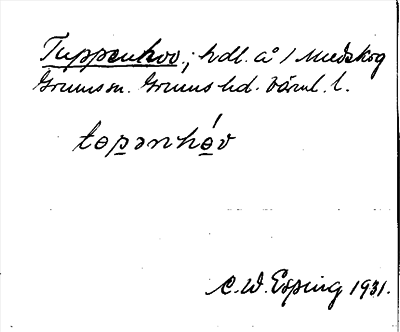 Tuppenhov; hdl. å / Medskog
Grums sn. Grums hd. Värml. l.
tɵpənhóv
C. W. Esping 1931.